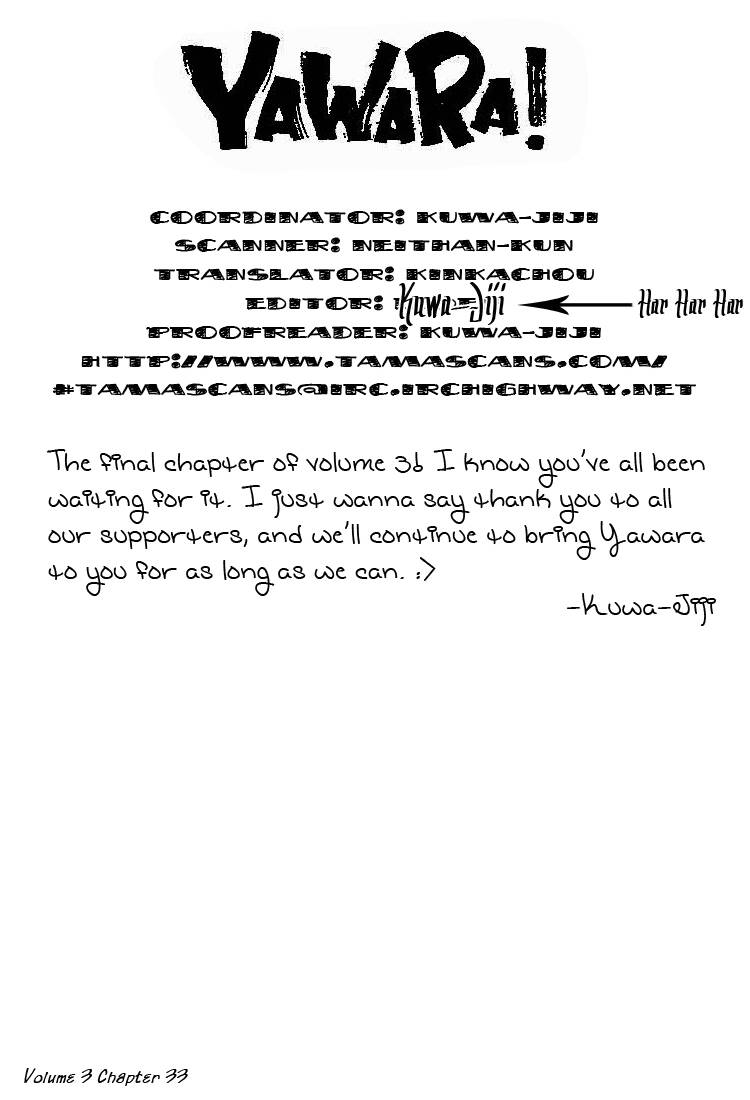 YAWARA!
COORDINATOR: KUWA-JIJI
SCANNER: NEITHAN-KUN
TRANSLATOR: KINKACHOU
EDITOR: Kuwa-Jiji Har Har Har
PROOFREADER: KUWA-JIJI
HTTP://WWW.TAMASCANS.COM/
#TAMASCANS@IRC.IRCHIGHWAY.NET
The final chapter of volume 3! I know you've all been
waiting for it. I just wanna say thank you to all
our supporters, and we'll continue to bring Yawara
to you for as long as we can. :)
-Kuwa-Jiji
Volume 3 Chapter 33